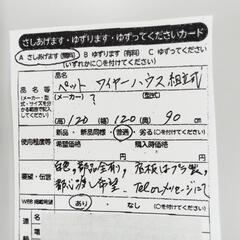 さしあげます・ゆずります・ゆずってくださいカード
A さしあげます(無料) B ゆずります(有料) C ゆずってください
(いずれかに○を付けてください)
品名等
(メーカー・型式・サイズを分かる範囲で記入してください)
(品名)
ペット ワイヤーハウス 組立式
(メーカー) ? (型式)
(高)120 (幅)120 (奥)90 cm
使用程度等
新品・新品同様・普通・劣る(○を付けてください)
希望価格
購入時価格
要望・伝言
白色、部品全有り、底板はプラ製、
都心渡し希望。Tel or メッセージにて
WEB掲載希望
あり ・ なし (○を付けてください)